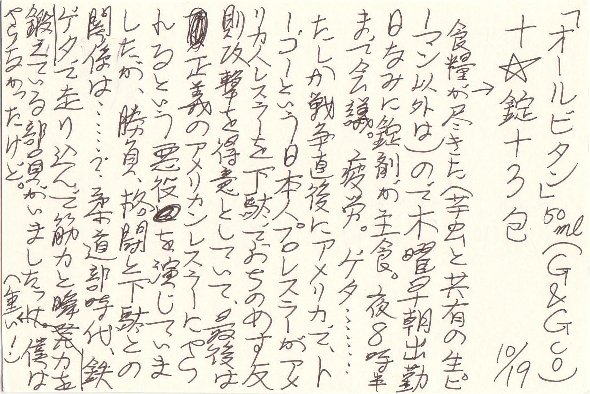 「オールビタン」50ml(G&G co)
+☆錠+3包 10/19
→食糧が尽きた(芋虫と共有の生ピ
ーマン以外は)ので木曜早朝出勤
日なみに錠剤が主食。夜8時半
まで会議。疲労。ゲタ………
たしか戦争直後にアメリカで、ト
ーゴーという日本人プロレスラーがアメ
リカンレスラーを下駄でぶちのめす反
則攻撃を得意としていて、最後は
正義のアメリカンレスラーにやら
れるという悪役を演じていま
したが、勝負、格闘と下駄との
関係は……で、柔道部時代、鉄
ゲタで走り込んで筋力と瞬発力を
鍛えている部員がいましたっけ。僕は
やらなかったけど。(重い!)